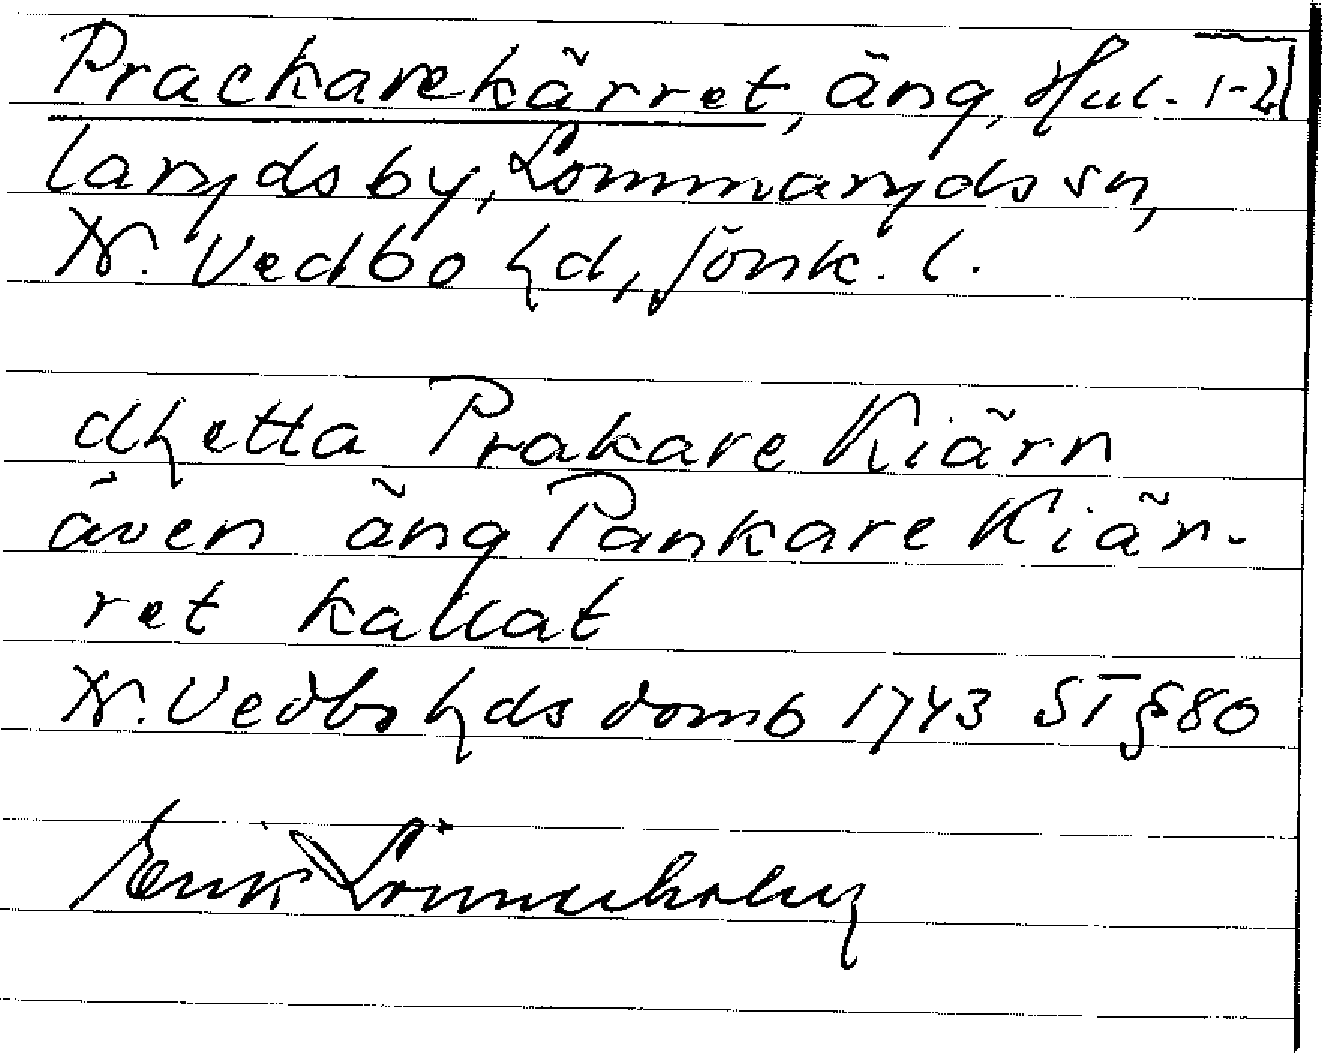 Prackarekärret, äng, Hul- 1-2
laryds by, Lommaryds sn,
N. Vedbo hd, Jönk. l.
dhetta Prakare Kiärn
även äng Pankare Kiär-
ret kallat
N. Vedbo hds domb 1743 ST § 80
Erik Lönnerholm